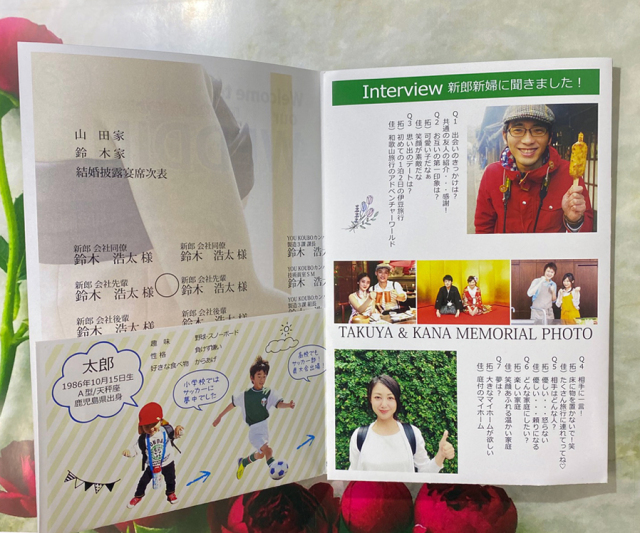 山田家
鈴木家
結婚披露宴席次表
新郎 会社同僚
鈴木 浩太 様
新郎 会社同僚
鈴木 浩太 様
新郎 会社先輩
鈴木 浩太 様
新郎 会社先輩
鈴木 浩太 様
新郎 会社後輩
鈴木 浩太 様
新郎 会社後輩
鈴木 浩太 様
鈴木 浩
鈴木 浩
太郎
1986年10月15日生
A型/天秤座
鹿児島県出身
趣味 野球・スノーボード
性格 負けず嫌い
好きな食べ物 からあげ
小学校では
サッカーに
夢中でした
高校でも
サッカー部!
県大会出場
Interview 新郎新婦に聞きました!
Q1 出会いのきっかけは?
共通の友人の紹介・・感謝!
Q2 お互いの第一印象は?
拓)可愛い子だなぁ
佳)笑顔が素敵だな
Q3 思い出のデートは?
拓)初めての1泊2日の伊豆旅行
佳)和歌山旅行のアドベンチャーワールド
TAKUYA & KANA MEMORIAL PHOTO
Q4 相手に一言!
拓)床に物を置かないで!笑
佳)たくさん旅行に連れてってね♡
Q5 相手はどんな人?
拓)優しい・・・怒らない
佳)優しい・・・頼りになる
Q6 どんな家庭にしたい?
拓)楽しい家庭
佳)笑顔あふれる温かい家庭
Q7 夢は?
拓)大きなマイホームが欲しい
佳)庭付のマイホーム